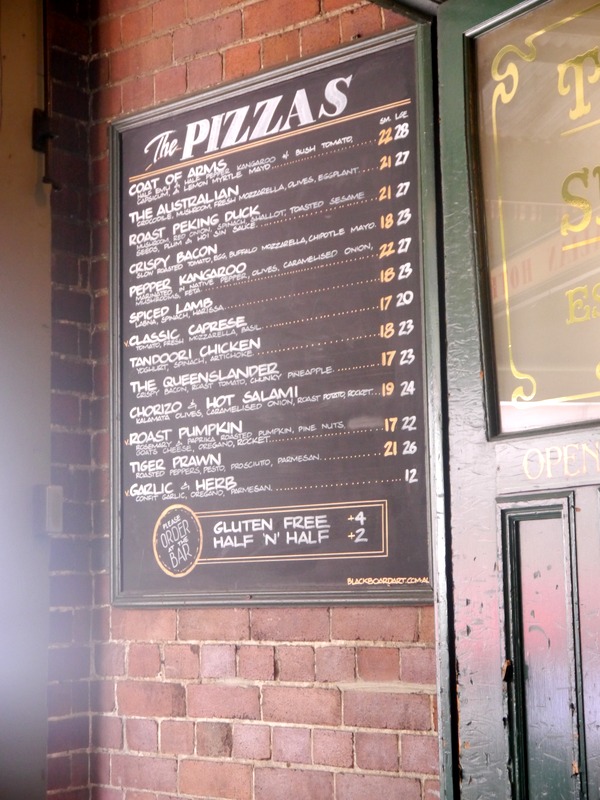 The PIZZAS
SM. LGE
COAT OF ARMS
HALF EMU & HALF PEPPER KANGAROO & BUSH TOMATO,
CAPSICUM, & LEMON MYRTLE MAYO 22 28
THE AUSTRALIAN
CROCODILE, MUSHROOM, FRESH MOZZARELLA, OLIVES, EGGPLANT. 21 27
ROAST PEKING DUCK
MUSHROOM, RED ONION, SPINACH, SHALLOT, TOASTED SESAME
SEEDS, PLUM & HOI SIN SAUCE. 21 27
CRISPY BACON
SLOW ROASTED TOMATO, EGG, BUFFALO MOZZARELLA, CHIPOTLE MAYO. 18 23
PEPPER KANGAROO
MARINATED IN NATIVE PEPPER, OLIVES, CARAMELISED ONION,
MUSHROOMS, FETA 22 27
SPICED LAMB
LABNA, SPINACH, HARISSA 18 23
V CLASSIC CAPRESE
TOMATO, FRESH MOZZARELLA, BASIL 17 20
TANDOORI CHICKEN
YOGHURT, SPINACH, ARTICHOKE 18 23
THE QUEENSLANDER
CRISPY BACON, ROAST TOMATO, CHUNKY PINEAPPLE. 17 23
CHORIZO & HOT SALAMI
KALAMATA OLIVES, CARAMELISED ONION, ROAST POTATO, ROCKET 19 24
V ROAST PUMPKIN
ROSEMARY & PAPRIKA ROASTED PUMPKIN, PINE NUTS,
GOATS CHEESE, OREGANO, ROCKET 17 22
TIGER PRAWN
ROASTED PEPPERS, PESTO, PROSCIUTO, PARMESAN. 21 26
V GARLIC & HERB
CONFIT GARLIC, OREGANO, PARMESAN. 12
PLEASE
ORDER
AT THE
BAR
GLUTEN FREE +4
HALF 'N' HALF +2
BLACKBOARDART.COM.AU
OPEN